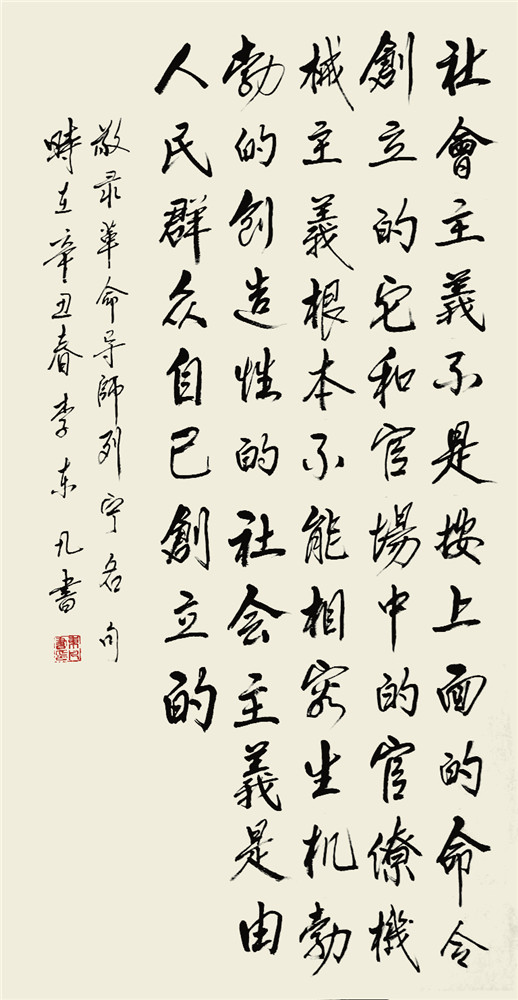 社會主義不是按上面的命令
創立的它和官場中的官僚機
械主義根本不能相容生机勃
勃的创造性的社会主義是由
人民群众自己創立的
敬录革命导師列宁名句
時在辛丑春李东凡書